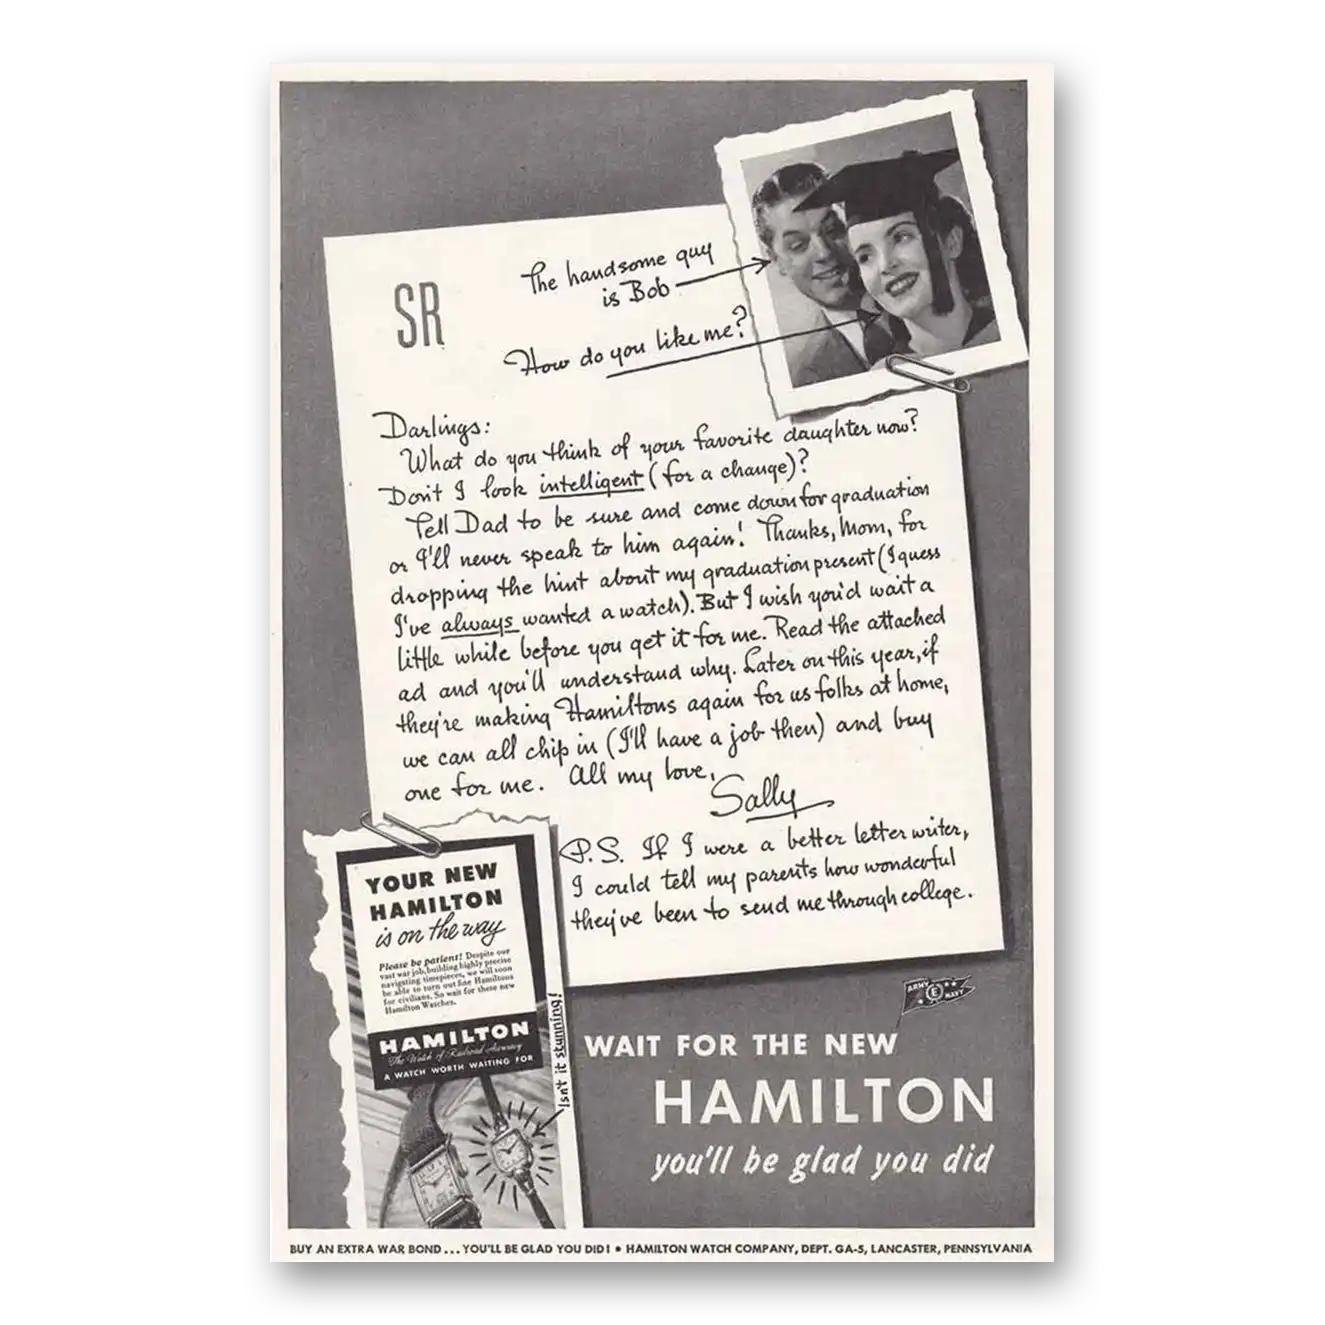 SR
The handsome guy
is Bob
How do you like me?
Darlings:
What do you think of your favorite daughter now?
Don't I look intelligent (for a change)?
Tell Dad to be sure and come down for graduation
or I'll never speak to him again! Thanks, Mom, for
dropping the hint about my graduation present (I guess
I've always wanted a watch). But I wish you'd wait a
little while before you get it for me. Read the attached
ad and you'll understand why. Later on this year, if
they're making Hamiltons again for us folks at home,
we can all chip in (I'll have a job then) and buy
one for me. All my love,
Sally
P.S. If I were a better letter writer,
I could tell my parents how wonderful
they've been to send me through college.
YOUR NEW
HAMILTON
is on the way
Please be patient! Despite our
vast war job, building highly precise
navigating timepieces, we will soon
be able to turn out fine Hamiltons
for civilians. So wait for these new
Hamilton Watches.
HAMILTON
The Watch of Railroad Accuracy
A WATCH WORTH WAITING FOR
Isn't it stunning!
ARMY E NAVY
WAIT FOR THE NEW
HAMILTON
you'll be glad you did
BUY AN EXTRA WAR BOND...YOU'LL BE GLAD YOU DID! • HAMILTON WATCH COMPANY, DEPT. GA-5, LANCASTER, PENNSYLVANIA